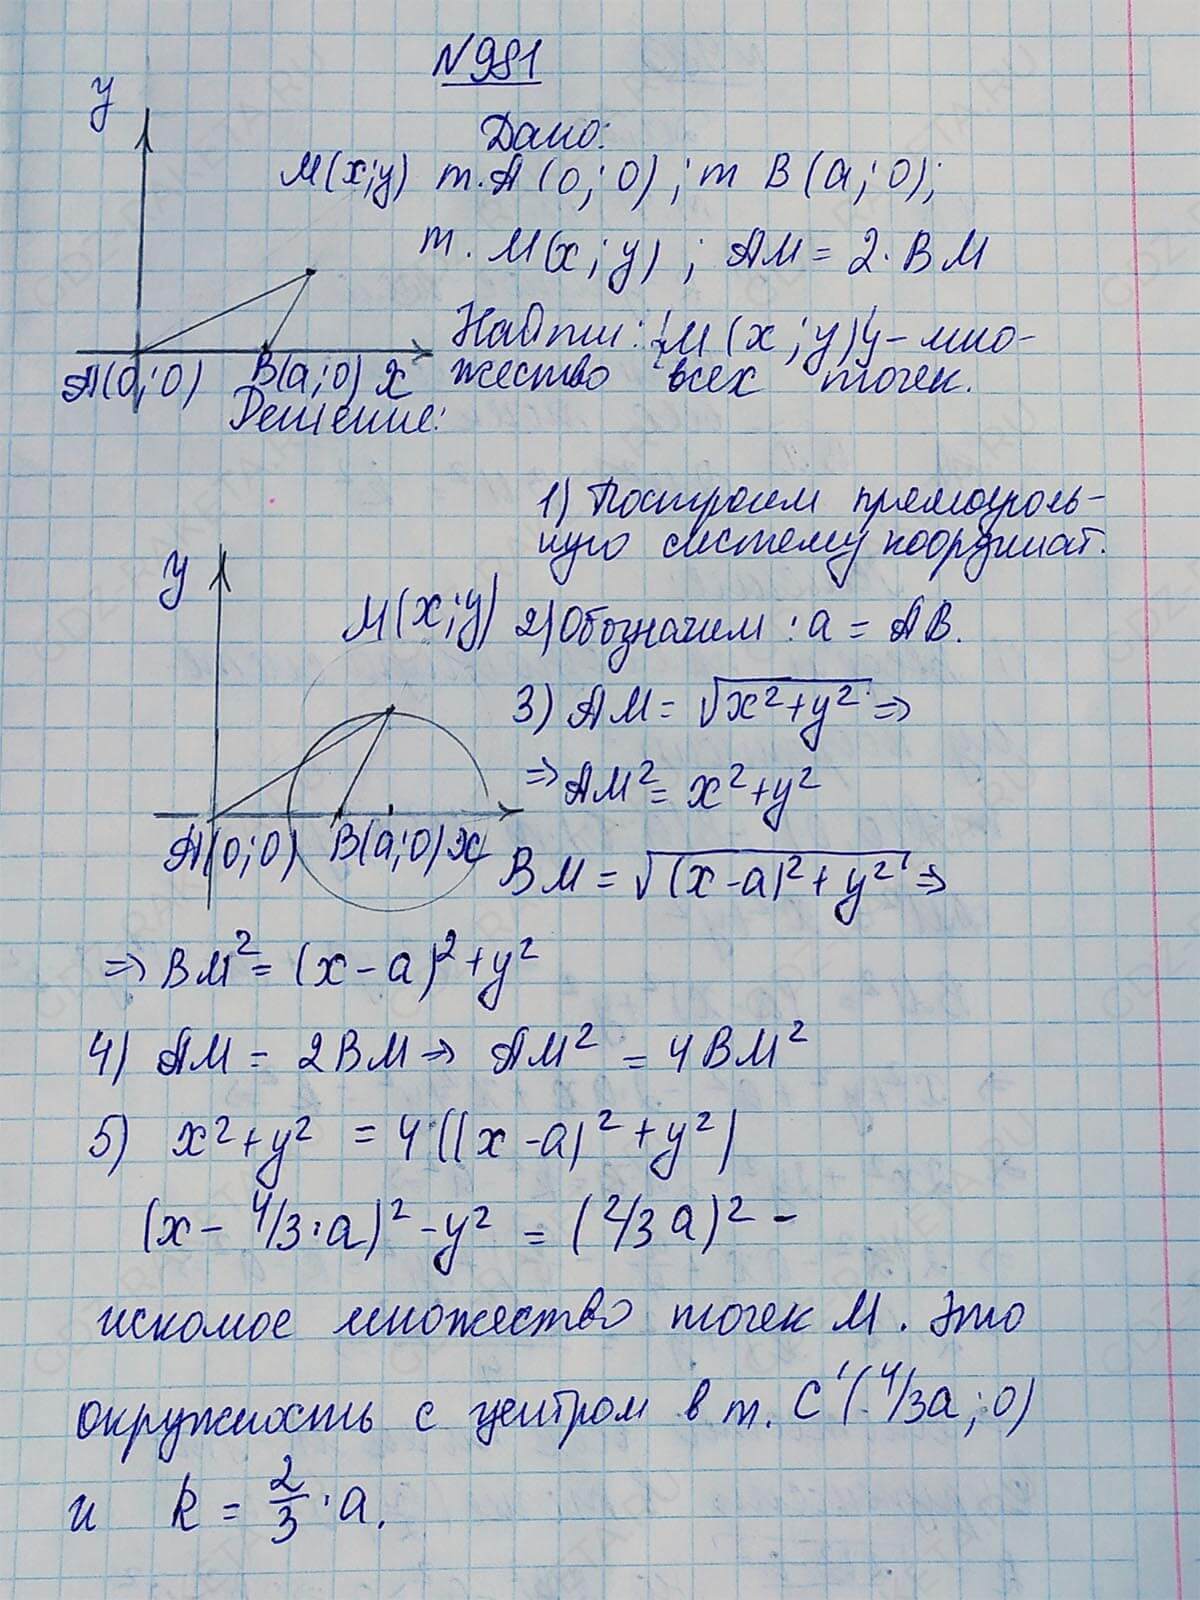 №981
y
Дано:
M(x;y) т. A(0;0); т B(a;0);
т. M(x;y); AM = 2·BM
Найти: {M(x;y)} - мно-
жество всех точек.
A(0;0) B(a;0) x
Решение:
1) Построим прямоуголь-
ную систему координат.
y
M(x;y) 2) Обозначим: a = AB.
3) AM = √x²+y² ⇒
⇒ AM² = x²+y²
A(0;0) B(a;0) x
BM = √(x-a)²+y² ⇒
⇒ BM² = (x-a)²+y²
4) AM = 2BM ⇒ AM² = 4BM²
5) x²+y² = 4((x-a)²+y²)
(x - 4/3·a)² - y² = (2/3 a)² -
искомое множество точек M. Это
окружность с центром в т. C'(4/3a;0)
и R = 2/3·a.